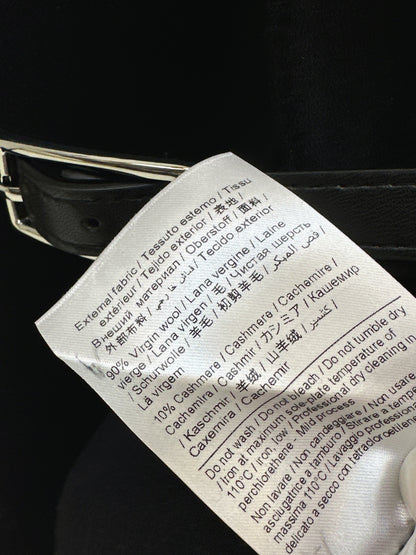 External fabric / Tessuto esterno / Tissu
extérieur / Tejido exterior / 表地
Внешний материал / Oberstoff / 面料
外部布料 / قماش خارجي / Tecido exterior
90% Virgin wool / Lana vergine / Laine
vierge / Lana virgen / 毛 / Чистая шерсть
/ Schurwolle / 羊毛 / 初剪羊毛 / الصوف البكر
Lã virgem
10% Cashmere / Cashmere / Cachemire /
Cachemira / Cashmir / カシミア / Кашемир
/ Kaschmir / 羊绒 / 山羊絨 / كشمير
Caxemira / Cachemir
Do not wash / Do not bleach / Do not tumble dry
/ Iron at maximum sole-plate temperature of
110°C / Iron, low / Professional dry cleaning in
perchlorethene - Mild process
Non lavare / Non candeggiare / Non usare
asciugatrice a tamburo / Stirare a temperatura
massima 110°C / Lavaggio professionale
delicato a secco con tetracloroetilene